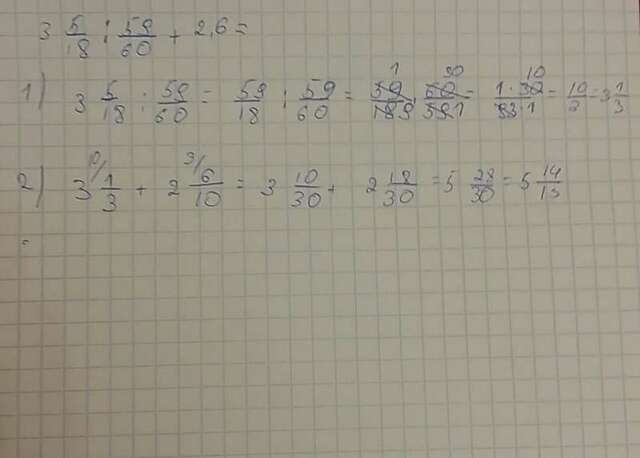 3 5/18 : 59/60 + 2,6 =
1) 3 5/18 : 59/60 = 59/18 : 59/60 = 59/18 · 60/59 = 1·30/9·1 = 10/3 = 3 1/3
2) 3 1/3 + 2 6/10 = 3 10/30 + 2 18/30 = 5 28/30 = 5 14/15
=